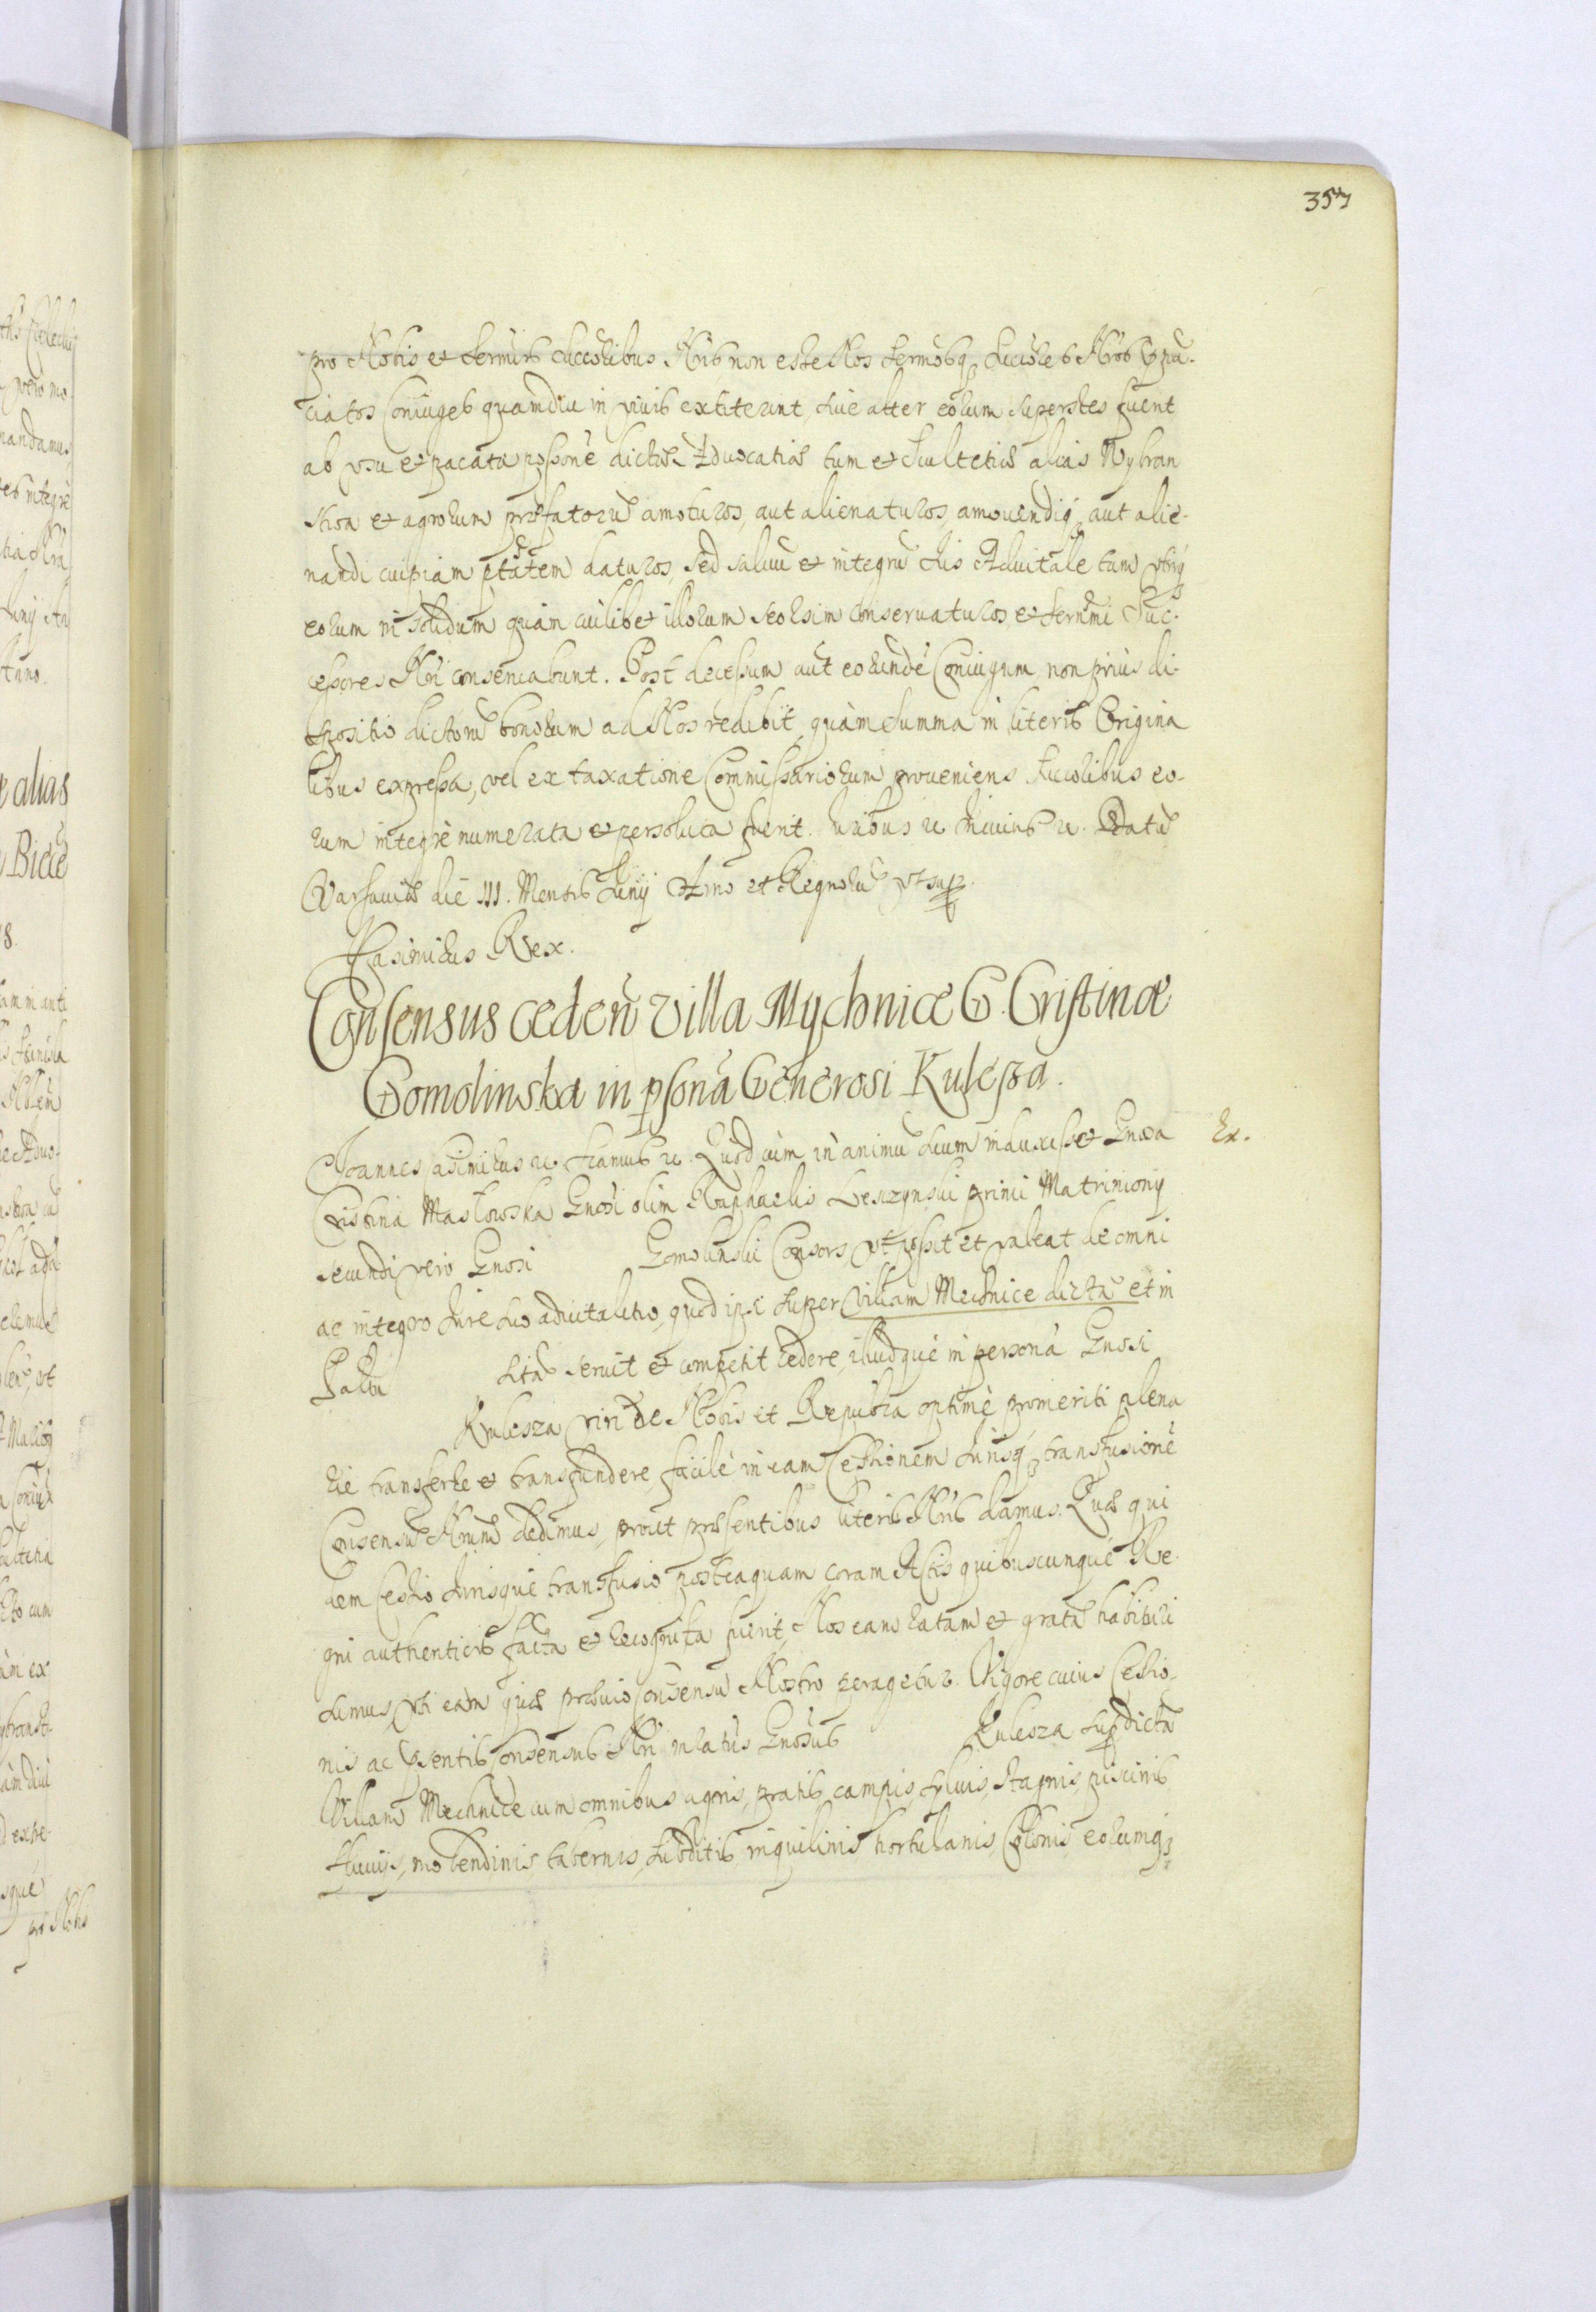 357
pro Nobis et Sermis Successoribus Nris non esse Nos Sermosq Successores Nros pnu-
ciatos Coniuges quamdiu in viuis extiterint, siue alter eorum superstes fuerit
ab vsu et pacata possone dictae Aduocatiae tum et Scultetiae alias Wybran
stwa et agrorum praefatoru amoturos, aut alienaturos, amouendiq aut alie-
nandi cuipiam ptatem daturos, Sed saluu et integru Ius Aduitale tam vtriq
eorum in solidum quam cuilibet illorum seorsim conseruaturos et Sernmi Suc-
cessores Nri conseruabunt. Post decessum aut eorunde Coniugum, non prius di-
spositio dictoru bonorum ad Nos redibit, quam summa in literis Origina
libus expressa, vel ex taxatione Commissariorum proueniens Successoribus eo-
rum integre numerata et persoluta fuerit. Iuribus Datu
Varsauiae die III. Mensis Iunij Anno et Regnoru vt sup.
Casimirus Rex.
Consensus ceden villa Mychnice G. Cristinae
Gomolinska in psona Generosi Kulessa.
Ex.
Ioannes Casimirus Quod cum in animu suum induxisset Gnosa
Cristina Masłowska Gnosi olim Raphaelis Leszzynski primi Matrimonij
secundi vero Gnosi Gomolinski Consors, vt possit et valeat de omni
ac integro Iure suo aduitalitio, quod ipsi super Villam Mechnice dicta et in
sita seruit et competit cedere, illudque in persona Gnosi
Kulesza viri de Nobis et Republica optime promeriti plena
rie transferre et transfundere, facile in eam Cessionem Iurisq transfusione
Consensu Nrum dedimus, prout praesentibus literis Nris damus. Quae qui
dem Cessio Iurisque transfusio posteaquam coram Actis quibuscunque Re-
gni authenticis facta et recognita fuerit, Nos eam ratam et grata habituri
sumus, vti eam quae praeuio Consensu Nostro peragetur. Vigore cuius Cessio-
nis ac psentis Consensus Nri Gnosus Kulesza supdicta
Villam Mechnice cum omnibus agris, pratis, campis, syluis, stagnis, piscinis
fluuijs, molendinis, tabernis, subditis, inquilinis hortulanis, Colonis, eorumq